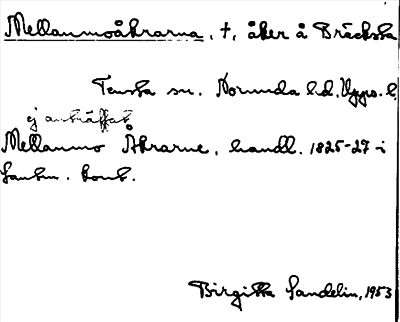 Mellanmoåkrarna, †, åker å Bräcksta
Tensta sn. Norunda hd. Upps. l.
ej anträffat
Mellanmo Åkrarne, handl. 1825-27 i
Lantm. kont.
Birgitta Sandelin, 1953